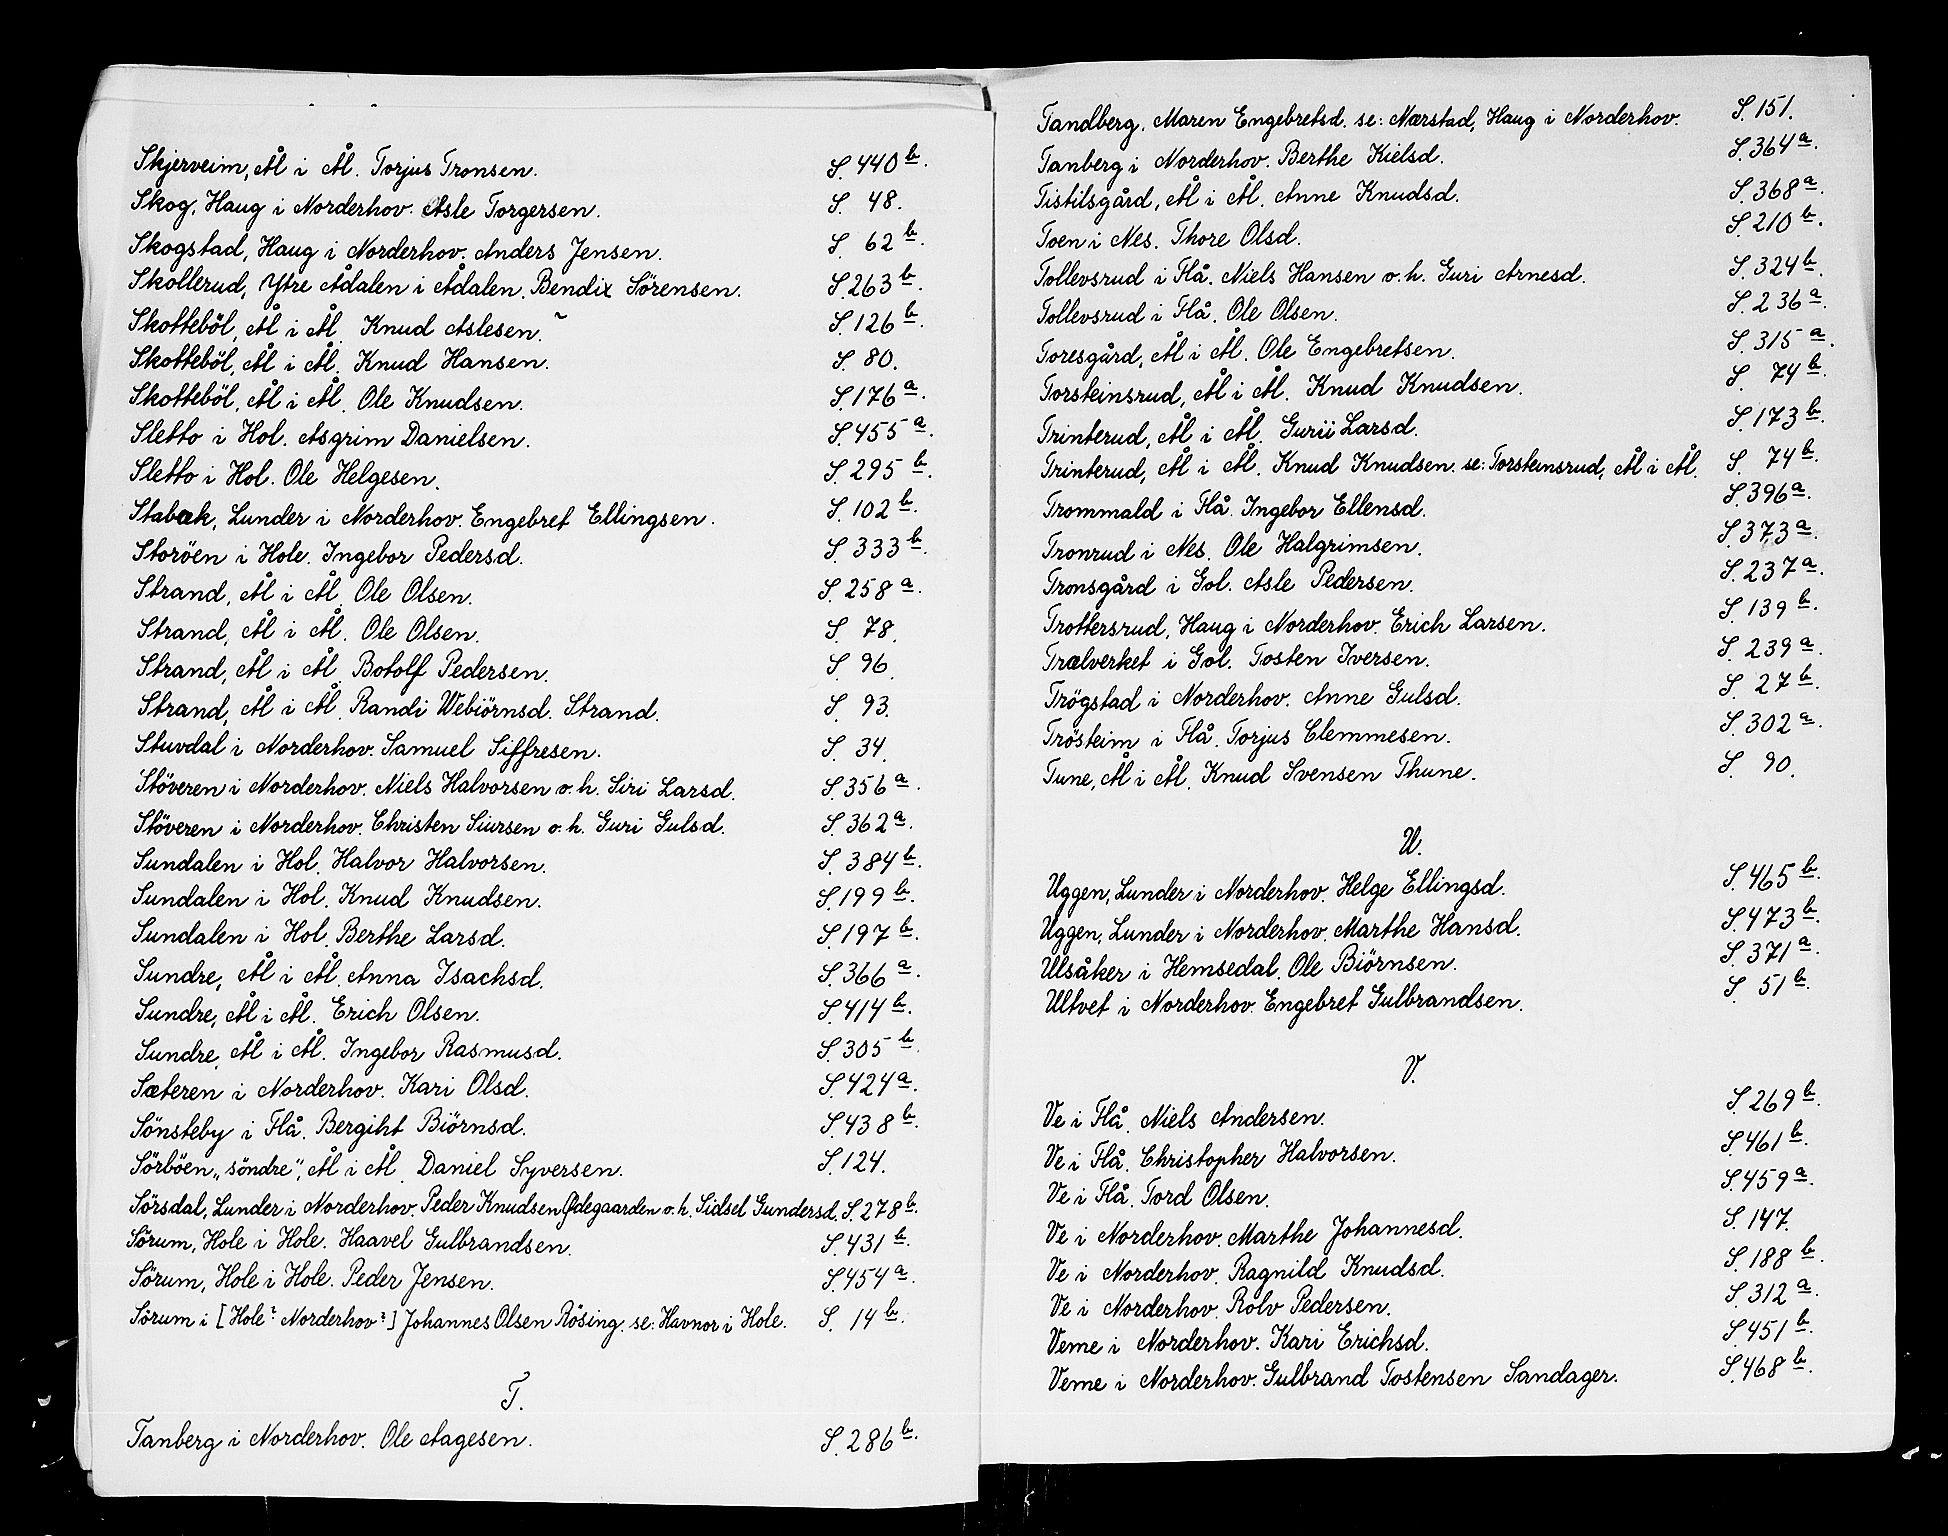 Skjerveim, Ål i Ål. Torjus Tronsen. S. 440 b.
Skog, Haug i Norderhov. Asle Torgersen. S. 48.
Skogstad, Haug i Norderhov. Anders Jensen. S. 62 b.
Skollerud, Ytre Ådalen i Ådalen. Bendix Sörensen. S. 263 b.
Skotteböl, Ål i Ål. Knud Aslesen. S. 126 b.
Skotteböl, Ål i Ål. Knud Hansen. S. 80.
Skotteböl, Ål i Ål. Ole Knudsen. S. 176 a.
Sletto i Hol. Asgrim Danielsen. S. 455 a.
Sletto i Hol. Ole Helgesen. S. 295 b.
Stabæk, Lunder i Norderhov. Engebret Ellingsen. S. 102 b.
Storöen i Hole. Ingebor Pedersd. S. 333 b.
Strand, Ål i Ål. Ole Olsen. S. 258 a.
Strand, Ål i Ål. Ole Olsen. S. 78.
Strand, Ål i Ål. Botolf Pedersen. S. 96.
Strand, Ål i Ål. Randi Webiörnsd. Strand. S. 93.
Stuvdal i Norderhov. Samuel Siffresen. S. 34.
Stöveren i Norderhov. Niels Halvorsen o.h. Siri Larsd. S. 356 a.
Stöveren i Norderhov. Christen Siursen o.h. Guri Gulsd. S. 362 a.
Sundalen i Hol. Halvor Halvorsen. S. 384 b.
Sundalen i Hol. Knud Knudsen. S. 199 b.
Sundalen i Hol. Berthe Larsd. S. 197 b.
Sundre, Ål i Ål. Anna Isachsd. S. 366 a.
Sundre, Ål i Ål. Erich Olsen. S. 414 b.
Sundre, Ål i Ål. Ingebor Rasmusd. S. 305 b.
Sæteren i Norderhov. Kari Olsd. S. 424 a.
Sönsteby i Flå. Bergiht Biörnsd. S. 438 b.
Sörböen, „söndre", Ål i Ål. Daniel Syversen. S. 124.
Sörsdal, Lunder i Norderhov. Peder Knudsen Ødegaarden o.h. Sidsel Gundersd. S. 278 b.
Sörum, Hole i Hole. Haavel Gulbrandsen. S. 431 b.
Sörum, Hole i Hole. Peder Jensen. S. 454 a.
Sörum i [Hole? Norderhov?] Johannes Olsen Rösing. se: Havnor i Hole. S. 14 b.
T.
Tanberg i Norderhov. Ole Aagesen. S. 286 b.
Tandberg, Maren Engebretsd. se: Nærstad, Haug i Norderhov. S. 151.
Tanberg i Norderhov. Berthe Kielsd. S. 364 a.
Tistilsgård, Ål i Ål. Anne Knudsd. S. 368 a.
Toen i Nes. Thore Olsd. S. 210 b.
Tollevsrud i Flå. Niels Hansen o.h. Guri Arnesd. S. 324 b.
Tollevsrud i Flå. Ole Olsen. S. 236 a.
Toresgård, Ål i Ål. Ole Engebretsen. S. 315 a.
Torsteinsrud, Ål i Ål. Knud Knudsen. S. 74 b.
Trinterud, Ål i Ål. Gurii Larsd. S. 173 b.
Trinterud, Ål i Ål. Knud Knudsen. se: Torsteinsrud, Ål i Ål. S. 74 b.
Trommald i Flå. Ingebor Ellensd. S. 396 a.
Tronrud i Nes. Ole Halgrimsen. S. 373 a.
Tronsgård i Gol. Asle Pedersen. S. 237 a.
Trottersrud, Haug i Norderhov. Erich Larsen. S. 139 b.
Trælverket i Gol. Tosten Iversen. S. 239 a.
Trögstad i Norderhov. Anne Gulsd. S. 27 b.
Trösteim i Flå. Torjus Clemmesen. S. 302 a.
Tune, Ål i Ål. Knud Svensen Thune. S. 90.
U.
Uggen, Lunder i Norderhov. Helge Ellingsd. S. 465 b.
Uggen, Lunder i Norderhov. Marthe Hansd. S. 473 b.
Ulsåker i Hemsedal. Ole Biörnsen. S. 371 a.
Ultvet i Norderhov. Engebret Gulbrandsen. S. 51 b.
V.
Ve i Flå. Niels Andersen. S. 269 b.
Ve i Flå. Christopher Halvorsen. S. 461 b.
Ve i Flå. Tord Olsen. S. 459 a.
Ve i Norderhov. Marthe Johannesd. S. 147.
Ve i Norderhov. Ragnild Knudsd. S. 188 b.
Ve i Norderhov. Rolv Pedersen. S. 312 a.
Veme i Norderhov. Kari Erichsd. S. 451 b.
Veme i Norderhov. Gulbrand Tostensen Sandager. S. 468 b.